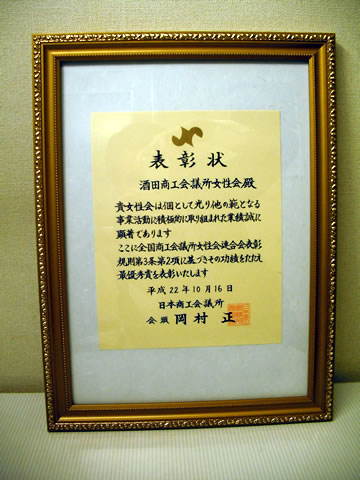 表彰状
酒田商工会議所女性会殿
貴女性会は個として光り他の範となる
事業活動に積極的に取り組まれた業績誠に
顕著であります
ここに全国商工会議所女性会連合会表彰
規則第3条第2項に基づきその功績をたたえ
最優秀賞を表彰いたします
平成22年10月16日
日本商工会議所
会頭 岡村 正